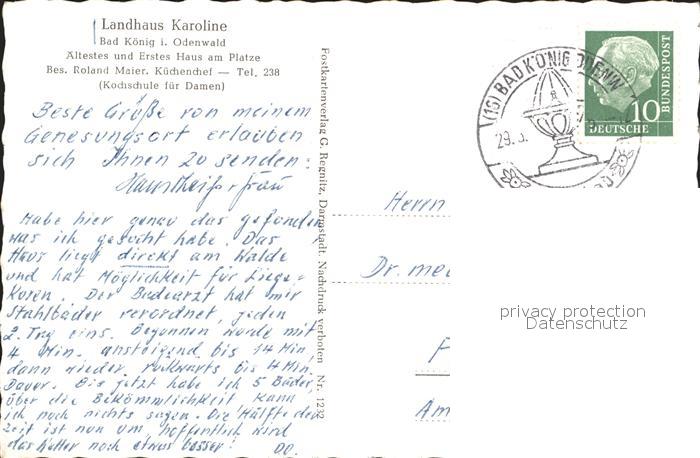 Landhaus Karoline
Bad König i. Odenwald
Ältestes und Erstes Haus am Platze
Bes. Roland Maier. Küchenchef — Tel. 238
(Kochschule für Damen)
Beste Grüße von meinem
Genesungsort erlauben
sich Ihnen zu senden:
Frau
Habe hier genau das gefunden
was ich gesucht habe. Das
Haus liegt direkt am Walde
und hat Möglichkeit für Liege-
Kuren. Der Badearzt hat mir
Stahlbäder verordnet, jeden
2. Tag eins. Begonnen wurde mit
4 Min. ansteigend bis 14 Min,
dann wieder rückwärts bis 4 Min.
Dauer. Bis jetzt habe ich 5 Bäder,
über die Bekömmlichkeit kann
ich noch nichts sagen. Die Hälfte der
Zeit ist nun um, hoffentlich wird
das Wetter noch etwas besser! DO.
Postkartenverlag G. Regnitz, Darmstadt. Nachdruck verboten Nr. 1232
(16) BAD KÖNIG ODENW
29. 5.
10
DEUTSCHE
BUNDESPOST
Herrn
Dr. med
F
Am
privacy protection
Datenschutz